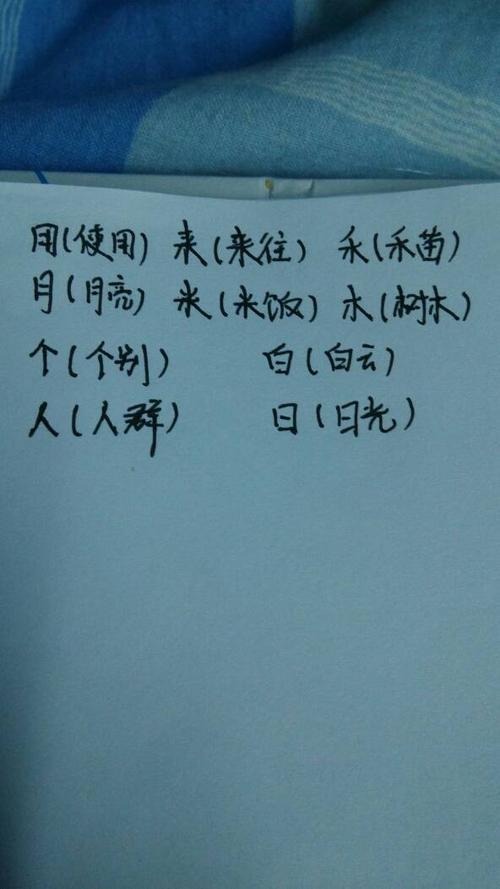 用(使用) 来(来往) 禾(禾苗)
月(月亮) 米(米饭) 木(树木)
个(个别) 白(白云)
人(人群) 日(日光)